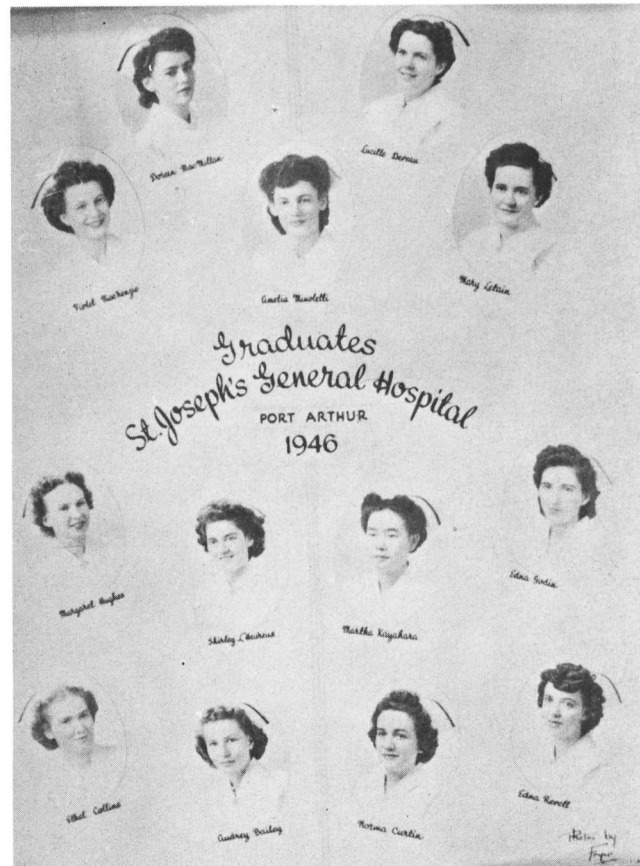 Doreen MacMillan
Lucille Dereau
Violet MacKenzie
Amelia Minoletti
Mary Letain
Graduates
St. Joseph's General Hospital
PORT ARTHUR
1946
Margaret Hughes
Shirley L'Heureux
Martha Kayahara
Edna Godin
Ethel Collins
Audrey Bailey
Norma Curtin
Edna Revell
Photos by